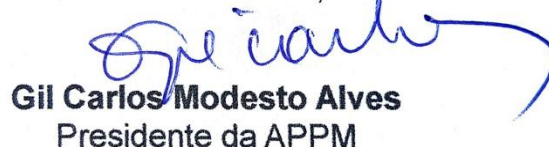 Gil Carlos Modesto Alves
Presidente da APPM